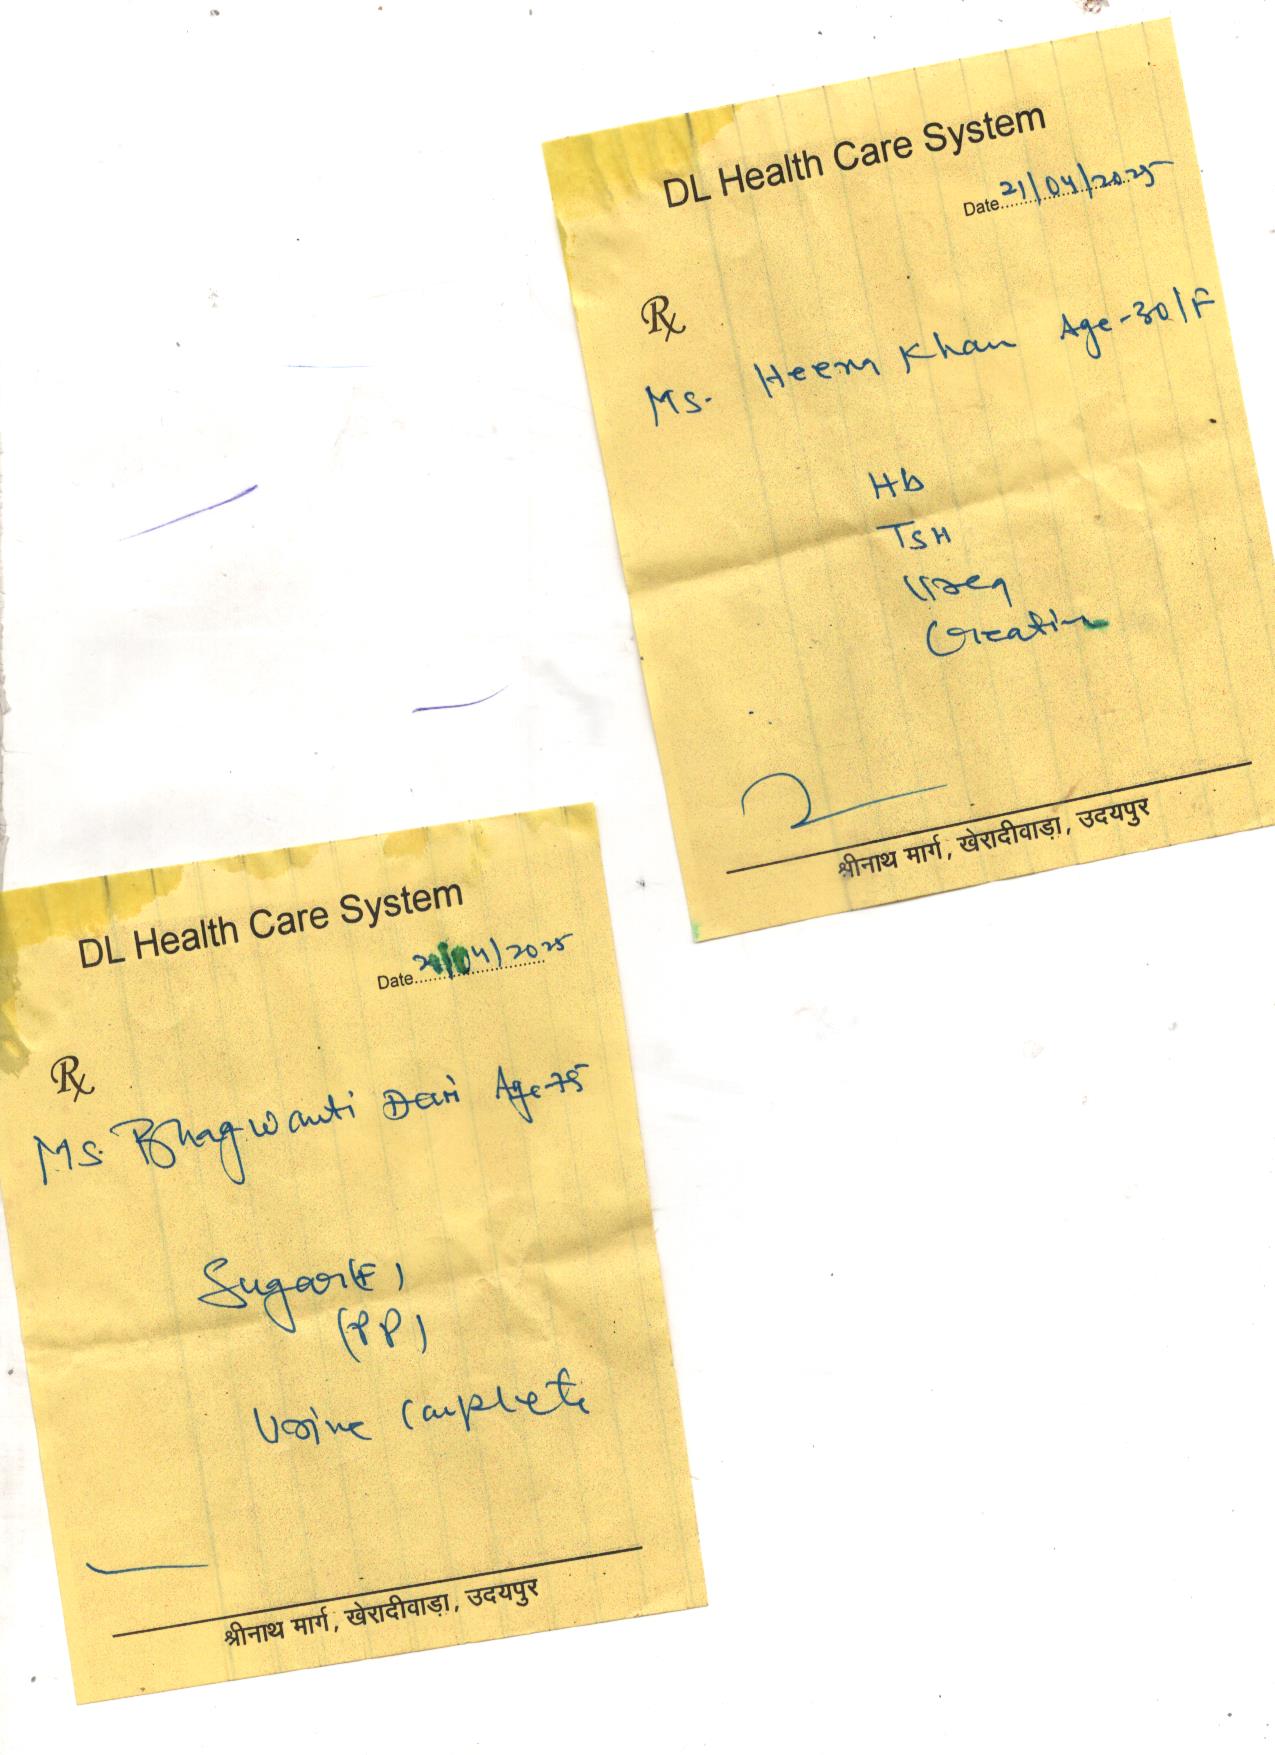 DL Health Care System
Date 21/04/2025
Rx
Ms. Heena Khan Age-30/F
Hb
TSH
Urea
Creatin
श्रीनाथ मार्ग, खेरादीवाड़ा, उदयपुर
DL Health Care System
Date 21/04/2025
Rx
Ms. Bhagwanti Devi Age-75
Sugar(F)
(PP)
Urine Complete
श्रीनाथ मार्ग, खेरादीवाड़ा, उदयपुर